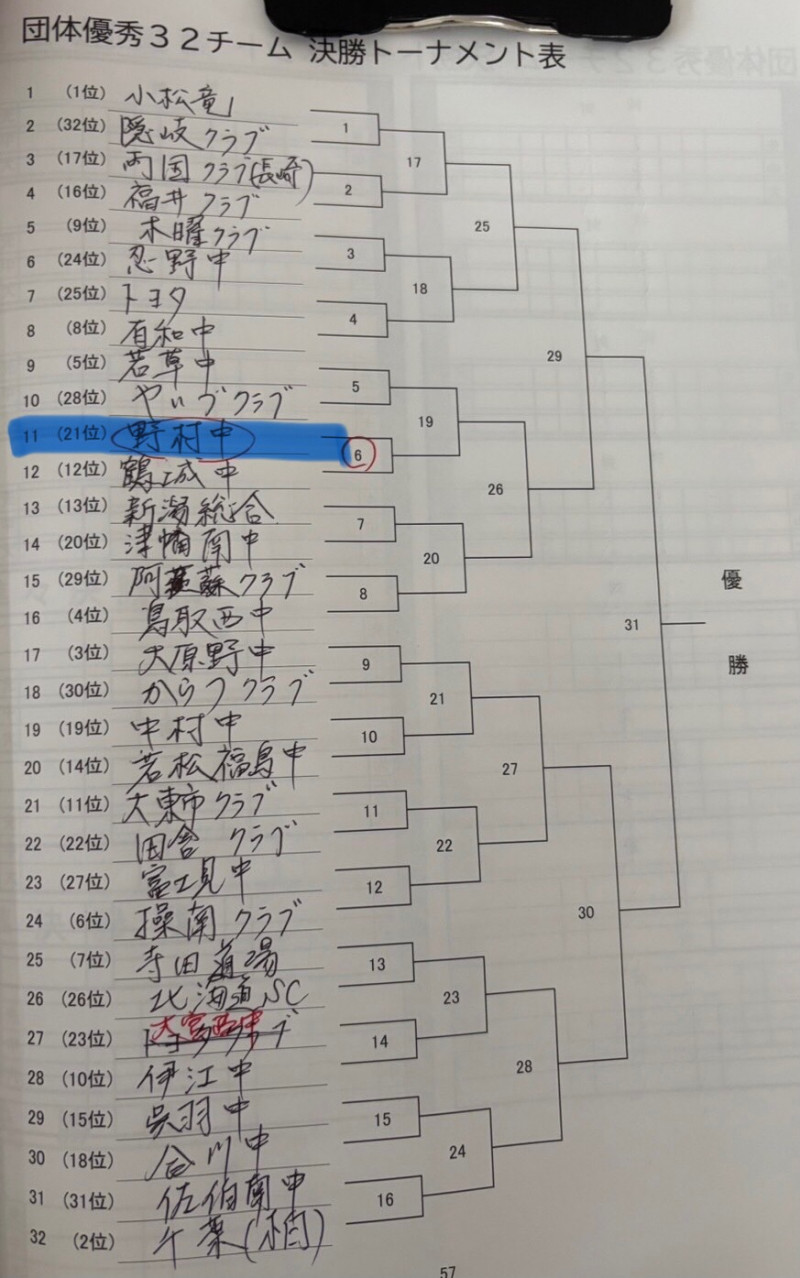 団体優秀３２チーム 決勝トーナメント表
1 (1位) 小松竜
2 (32位) 隠岐クラブ
3 (17位) 両国クラブ(長崎)
4 (16位) 福井クラブ
5 (9位) 木曜クラブ
6 (24位) 忍野中
7 (25位) トヨタ
8 (8位) 有和中
9 (5位) 若草中
10 (28位) やいづクラブ
11 (21位) 野村中
12 (12位) 鶴城中
13 (13位) 新潟総合
14 (20位) 津幡南中
15 (29位) 阿蘇クラブ
16 (4位) 鳥取西中
17 (3位) 大原野中
18 (30位) からつクラブ
19 (19位) 中村中
20 (14位) 若松福島中
21 (11位) 大東市クラブ
22 (22位) 田舎クラブ
23 (27位) 富士見中
24 (6位) 操南クラブ
25 (7位) 寺田道場
26 (26位) 北海道SC
27 (23位) 大宮西中
28 (10位) 伊江中
29 (15位) 呉羽中
30 (18位) 谷川中
31 (31位) 佐伯南中
32 (2位) 千葉(柏)
1
2
3
4
5
6
7
8
9
10
11
12
13
14
15
16
17
18
19
20
21
22
23
24
25
26
27
28
29
30
31
優
勝
57